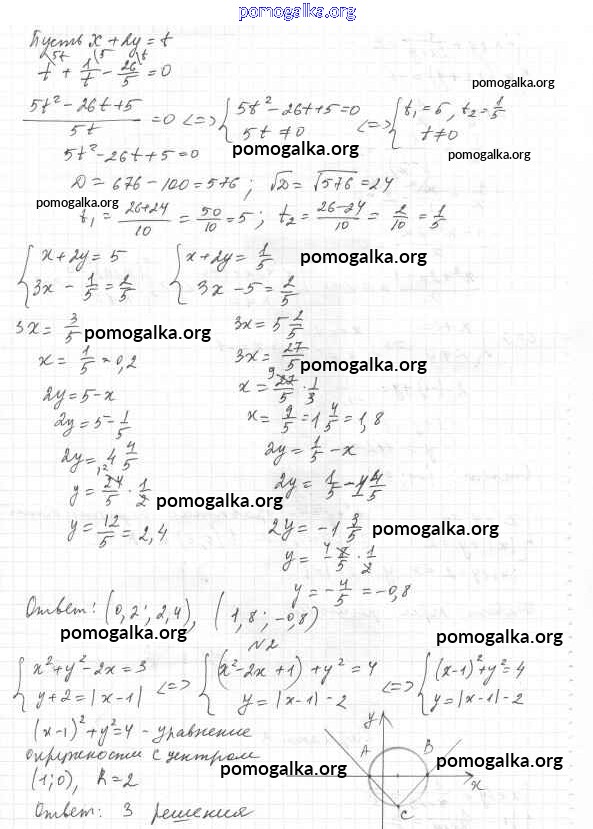 pomogalka.org
Пусть x + 2y = t
t + 1/t - 26/5 = 0
pomogalka.org
(5t² - 26t + 5)/5t = 0 <=> { 5t² - 26t + 5 = 0; 5t ≠ 0 <=> { t₁ = 5, t₂ = 1/5; t ≠ 0
5t² - 26t + 5 = 0
pomogalka.org
pomogalka.org
D = 676 - 100 = 576; √D = √576 = 24
pomogalka.org
t₁ = (26+24)/10 = 50/10 = 5; t₂ = (26-24)/10 = 2/10 = 1/5
{ x + 2y = 5; 3x - 1/5 = 2/5
{ x + 2y = 1/5; 3x - 5 = 2/5
pomogalka.org
3x = 3/5
pomogalka.org
x = 1/5 = 0,2
2y = 5 - x
2y = 5 - 1/5
2y = 4 4/5
y = 24/5 · 1/2
pomogalka.org
y = 12/5 = 2,4
3x = 5 2/5
3x = 27/5
pomogalka.org
x = 27/5 · 1/3
x = 9/5 = 1 4/5 = 1,8
2y = 1/5 - x
2y = 1/5 - 1 4/5
2y = -1 3/5
pomogalka.org
y = -8/5 · 1/2
y = -4/5 = -0,8
Ответ: (0,2; 2,4), (1,8; -0,8)
pomogalka.org
pomogalka.org
N2
{ x² + y² - 2x = 3; y + 2 = |x - 1| <=> { (x² - 2x + 1) + y² = 4; y = |x - 1| - 2 <=> { (x-1)² + y² = 4; y = |x - 1| - 2
(x-1)² + y² = 4 - уравнение
окружности с центром
(1; 0), R = 2
Ответ: 3 решения
pomogalka.org
pomogalka.org
y
A
B
x
C